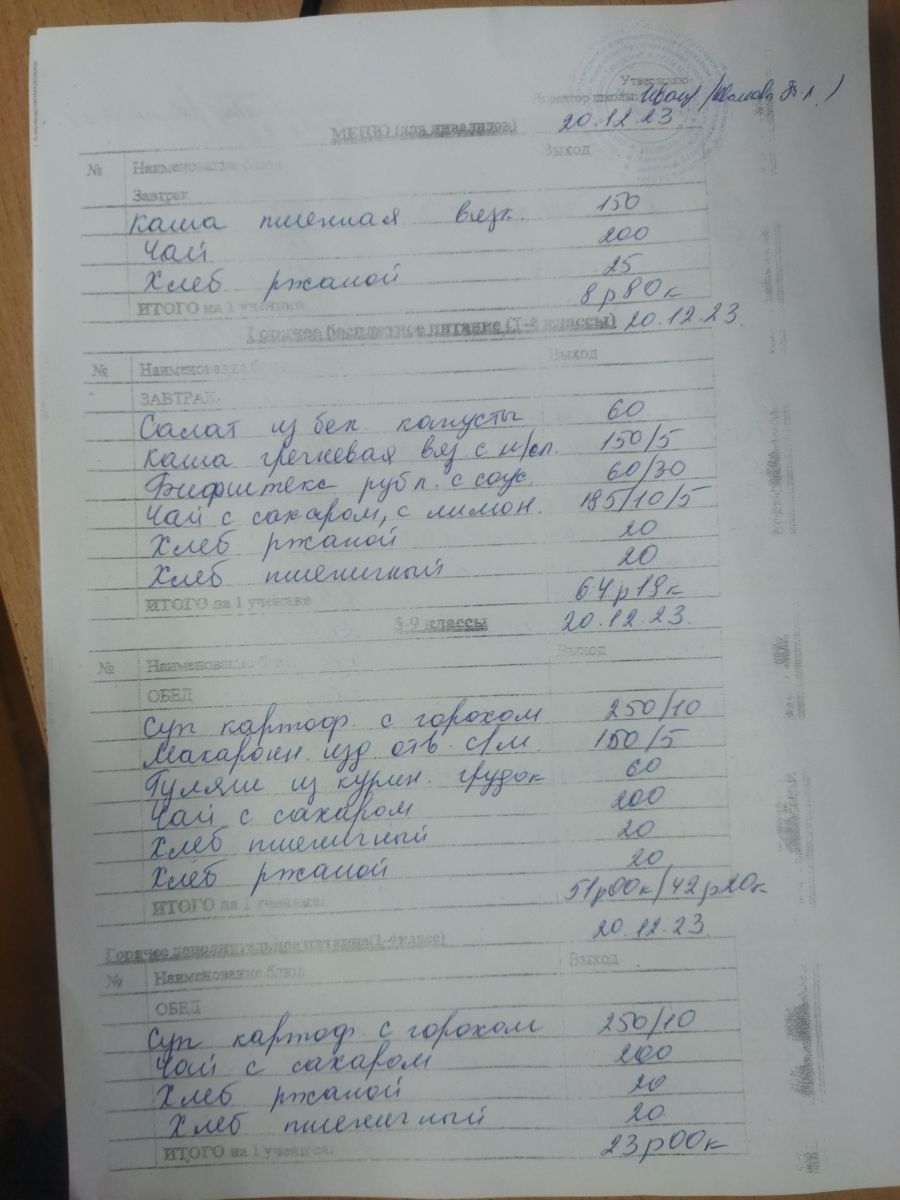 Утверждаю
Директор школы:
МЕНЮ (для инвалидов) 20.12.23
№ Наименование блюд Выход
Завтрак
Каша пшенная вязк. 150
Чай 200
Хлеб ржаной 25
ИТОГО на 1 ученика 8р80к
Горячее бесплатное питание (1-4 классы) 20.12.23
№ Наименование блюд Выход
ЗАВТРАК
Салат из бел. капусты 60
Каша гречневая вяз с м/сл. 150/5
Бифштекс рубл. с соус. 60/30
Чай с сахаром, с лимон. 185/10/5
Хлеб ржаной 20
Хлеб пшеничный 20
ИТОГО на 1 ученика 64р19к
5-9 классы 20.12.23.
№ Наименование блюд Выход
ОБЕД
Суп картоф. с горохом 250/10
Макаронн. изд отв. с/м. 150/5
Гуляш из курин. грудок 60
Чай с сахаром 200
Хлеб пшеничный 20
Хлеб ржаной 20
ИТОГО на 1 ученика: 51р00к/42р20к
20.12.23.
Горячее дополнительное питание(1-4класс)
№ Наименование блюд Выход
ОБЕД
Суп картоф. с горохом 250/10
Чай с сахаром 200
Хлеб ржаной 20
Хлеб пшеничный 20
ИТОГО на 1 ученика: 23р00к